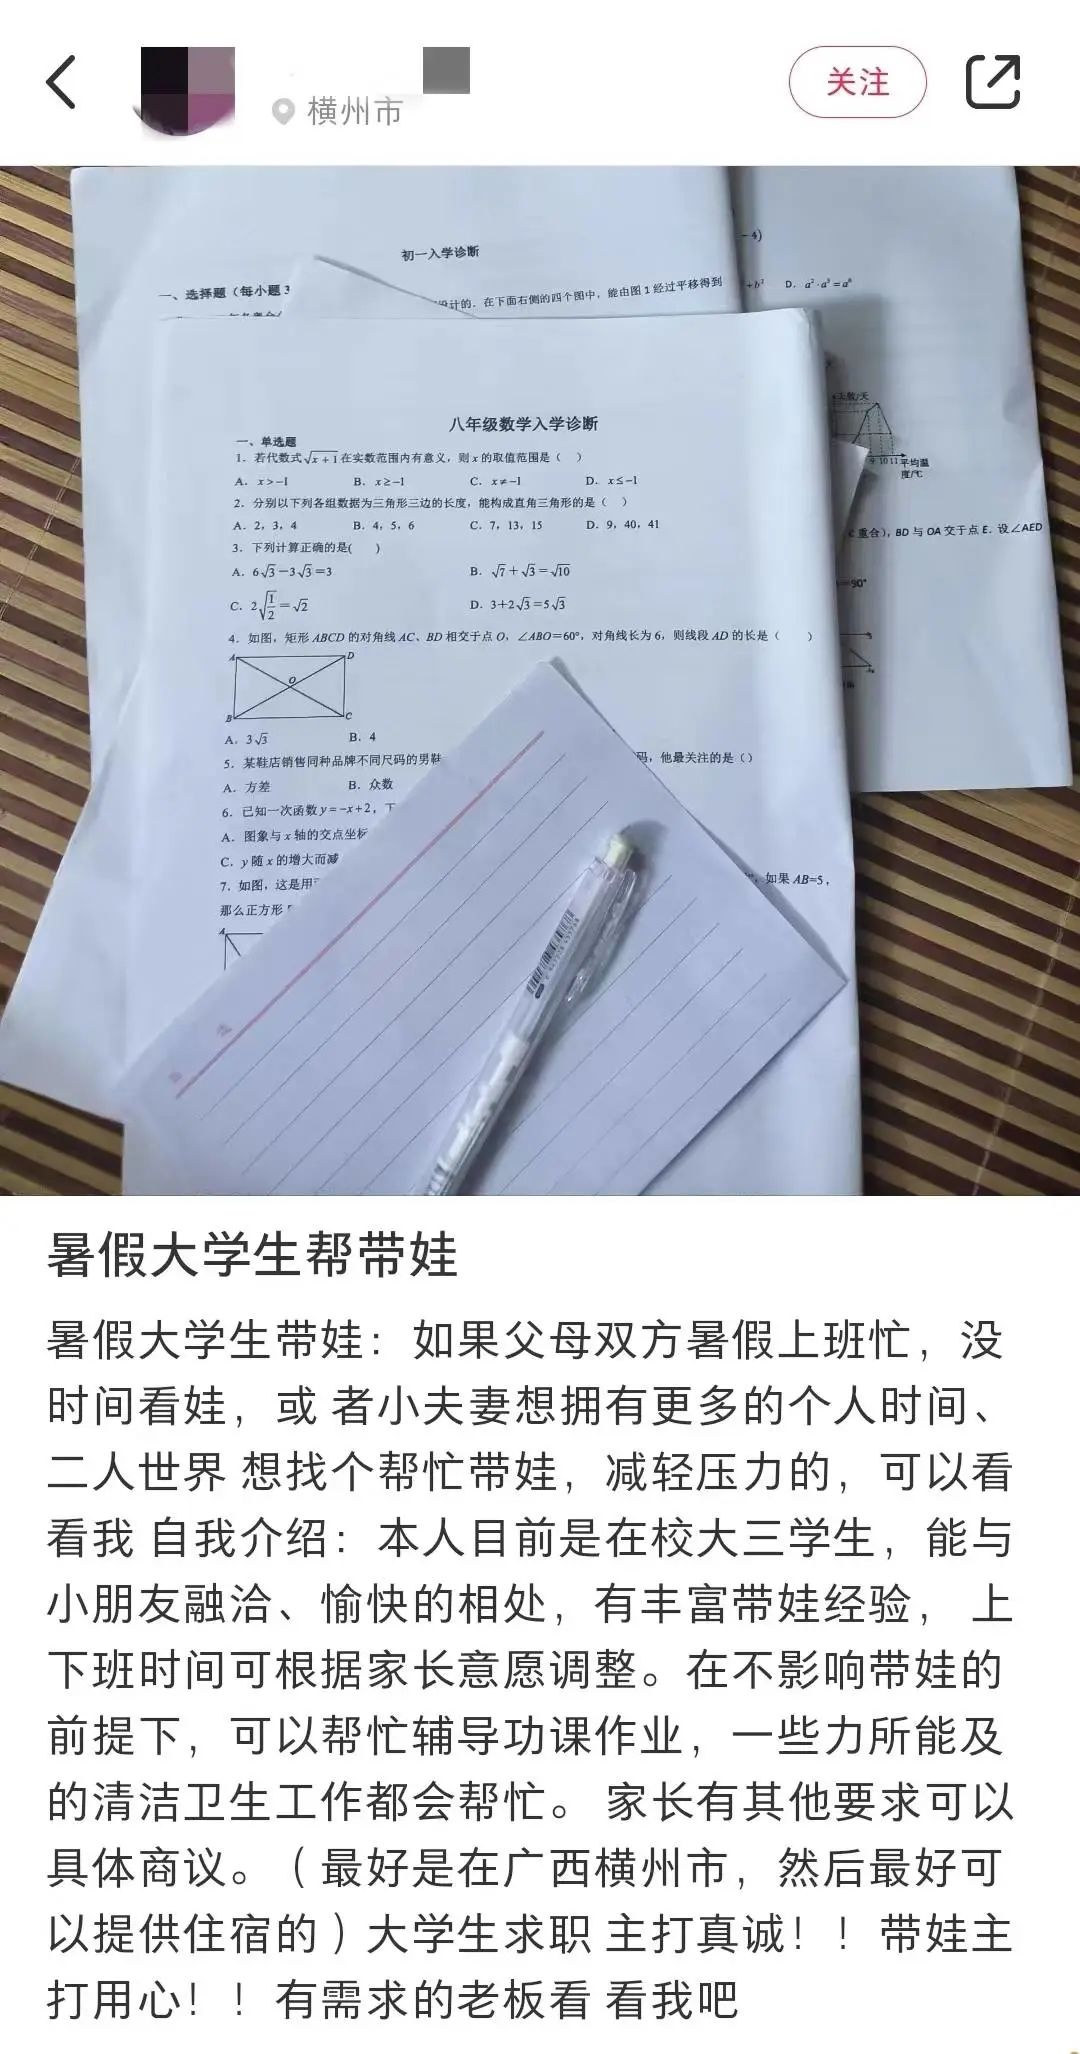 横州市
关注
初一入学诊断
一、选择题（每小题3
设计的．在下面右侧的四个图中，能由图1经过平移得到
-4)
+b² D．a²·a³=a⁶
八年级数学入学诊断
一、单选题
1．若代数式√(x+1)在实数范围内有意义，则x的取值范围是（ ）
A．x>-1 B．x≥-1 C．x≠-1 D．x≤-1
2．分别以下列各组数据为三角形三边的长度，能构成直角三角形的是（ ）
A．2，3，4 B．4，5，6 C．7，13，15 D．9，40，41
3．下列计算正确的是( )
A．6√3-3√3=3 B．√7+√3=√10
C．2√(1/2)=√2 D．3+2√3=5√3
4．如图，矩形ABCD的对角线AC、BD相交于点O，∠ABO=60°，对角线长为6，则线段AD的长是（ ）
A D
O
B C
A．3√3 B．4
5．某鞋店销售同种品牌不同尺码的男鞋 码，他最关注的是（）
A．方差 B．众数
6．已知一次函数y=-x+2，下
A．图象与x轴的交点坐标
C．y随x的增大而减
7．如图，这是用 如果AB=5，
那么正方形
A
天数/天
9 10 11 平均温
度/℃
C重合），BD与OA交于点E．设∠AED
=90°
暑假大学生帮带娃
暑假大学生带娃：如果父母双方暑假上班忙，没
时间看娃，或 者小夫妻想拥有更多的个人时间、
二人世界 想找个帮忙带娃，减轻压力的，可以看
看我 自我介绍：本人目前是在校大三学生，能与
小朋友融洽、愉快的相处，有丰富带娃经验， 上
下班时间可根据家长意愿调整。在不影响带娃的
前提下，可以帮忙辅导功课作业，一些力所能及
的清洁卫生工作都会帮忙。 家长有其他要求可以
具体商议。（最好是在广西横州市，然后最好可
以提供住宿的）大学生求职 主打真诚！！带娃主
打用心！！有需求的老板看 看我吧